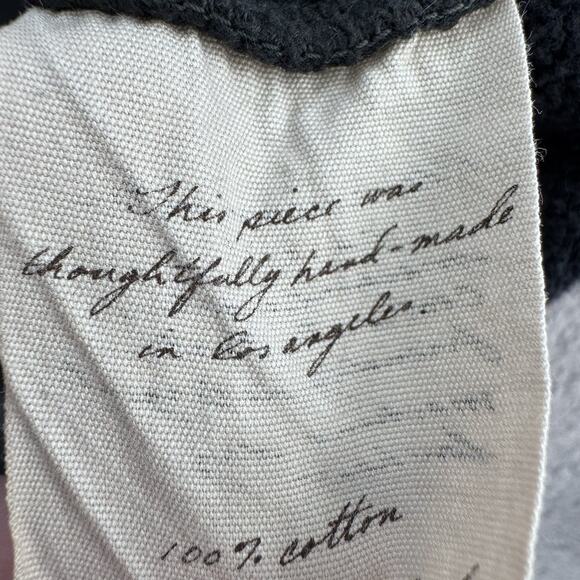 This piece was
thoughtfully hand-made
in los angeles.
100% cotton